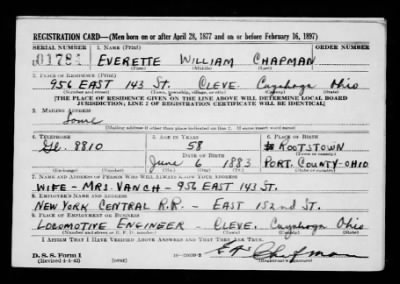 REGISTRATION CARD—(Men born on or after April 28, 1877 and on or before February 16, 1897)
SERIAL NUMBER 1. NAME (Print) ORDER NUMBER
U1784 EVERETTE WILLIAM CHAPMAN
(First) (Middle) (Last)
2. PLACE OF RESIDENCE (Print)
956 EAST 143 ST. CLEVE. Cuyahoga Ohio
(Number and street) (Town, township, village, or city) (County) (State)
[THE PLACE OF RESIDENCE GIVEN ON THE LINE ABOVE WILL DETERMINE LOCAL BOARD
JURISDICTION; LINE 2 OF REGISTRATION CERTIFICATE WILL BE IDENTICAL]
3. MAILING ADDRESS
Same
[Mailing address if other than place indicated on line 2. If same insert word same]
4. TELEPHONE 5. AGE IN YEARS 6. PLACE OF BIRTH
GL. 8810 58 ROOTSTOWN
DATE OF BIRTH (Town or county)
June 6 1883 PORT. COUNTY-OHIO
(Exchange) (Number) (Mo.) (Day) (Yr.) (State or country)
7. NAME AND ADDRESS OF PERSON WHO WILL ALWAYS KNOW YOUR ADDRESS
WIFE - MRS. VANCH - 956 EAST 143 ST.
8. EMPLOYER'S NAME AND ADDRESS
NEW YORK CENTRAL R.R. - EAST 152nd ST.
9. PLACE OF EMPLOYMENT OR BUSINESS
LOCOMOTIVE ENGINEER - CLEVE. Cuyahoga Ohio
(Number and street or R. F. D. number) (Town) (County) (State)
I AFFIRM THAT I HAVE VERIFIED ABOVE ANSWERS AND THAT THEY ARE TRUE.
D. S. S. Form 1
(Revised 4-1-42) (over) Chapman
(Registrant's signature)